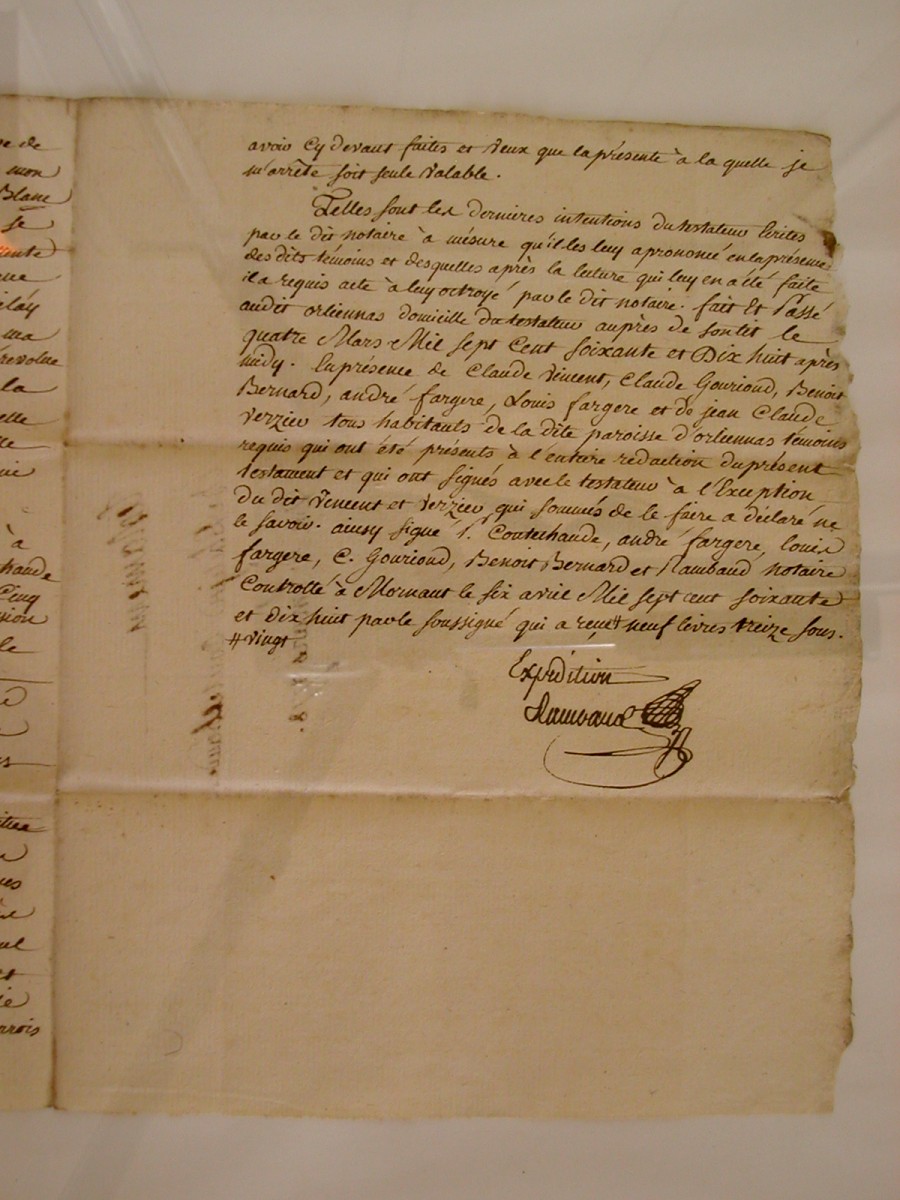 re de
mon
Blanc
se
ente
que
ma
révolue
la
elle
lle
à
hande
Cinq
sion
le
avoir Cy devant faites et veux que la présente à la quelle je
m'arrête soit seule valable.
Telles sont les dernieres intentions du testateur Ecrites
par le dit notaire à mésure qu'il les luy a prononcé en la présence
des dits témoins et desquelles après la lecture qui luy en a été faite
il a requis acte à luy octroyé par le dit notaire. fait Et Passé
audit orliennas domicille du testateur auprès de son lit le
quatre Mars Mil sept Cent soixante et Dix huit après
midy. En présence de Claude Vincent, Claude Gourioud, Benoit
Bernard, andré fargere, Louis fargere et de jean Claude
Verzieu tous habitants de la dite paroisse d'orliennas témoins
requis qui ont été présents à l'entiere rédaction du présent
testament et qui ont signés avec le testateur à l'Exception
du dit Vincent et Verzieu qui sommés de le faire a déclaré ne
le savoir. ainsy signé P. Coutechaude, andré fargere, louis
fargere, C. Gourioud, Benoit Bernard et Rambaud notaire
Controllé à Mornant le six avril Mil sept cent soixante
et dix huit par le soussigné qui a reçu # neuf livres treize sous.
# vingt
Expédition
Rambaud